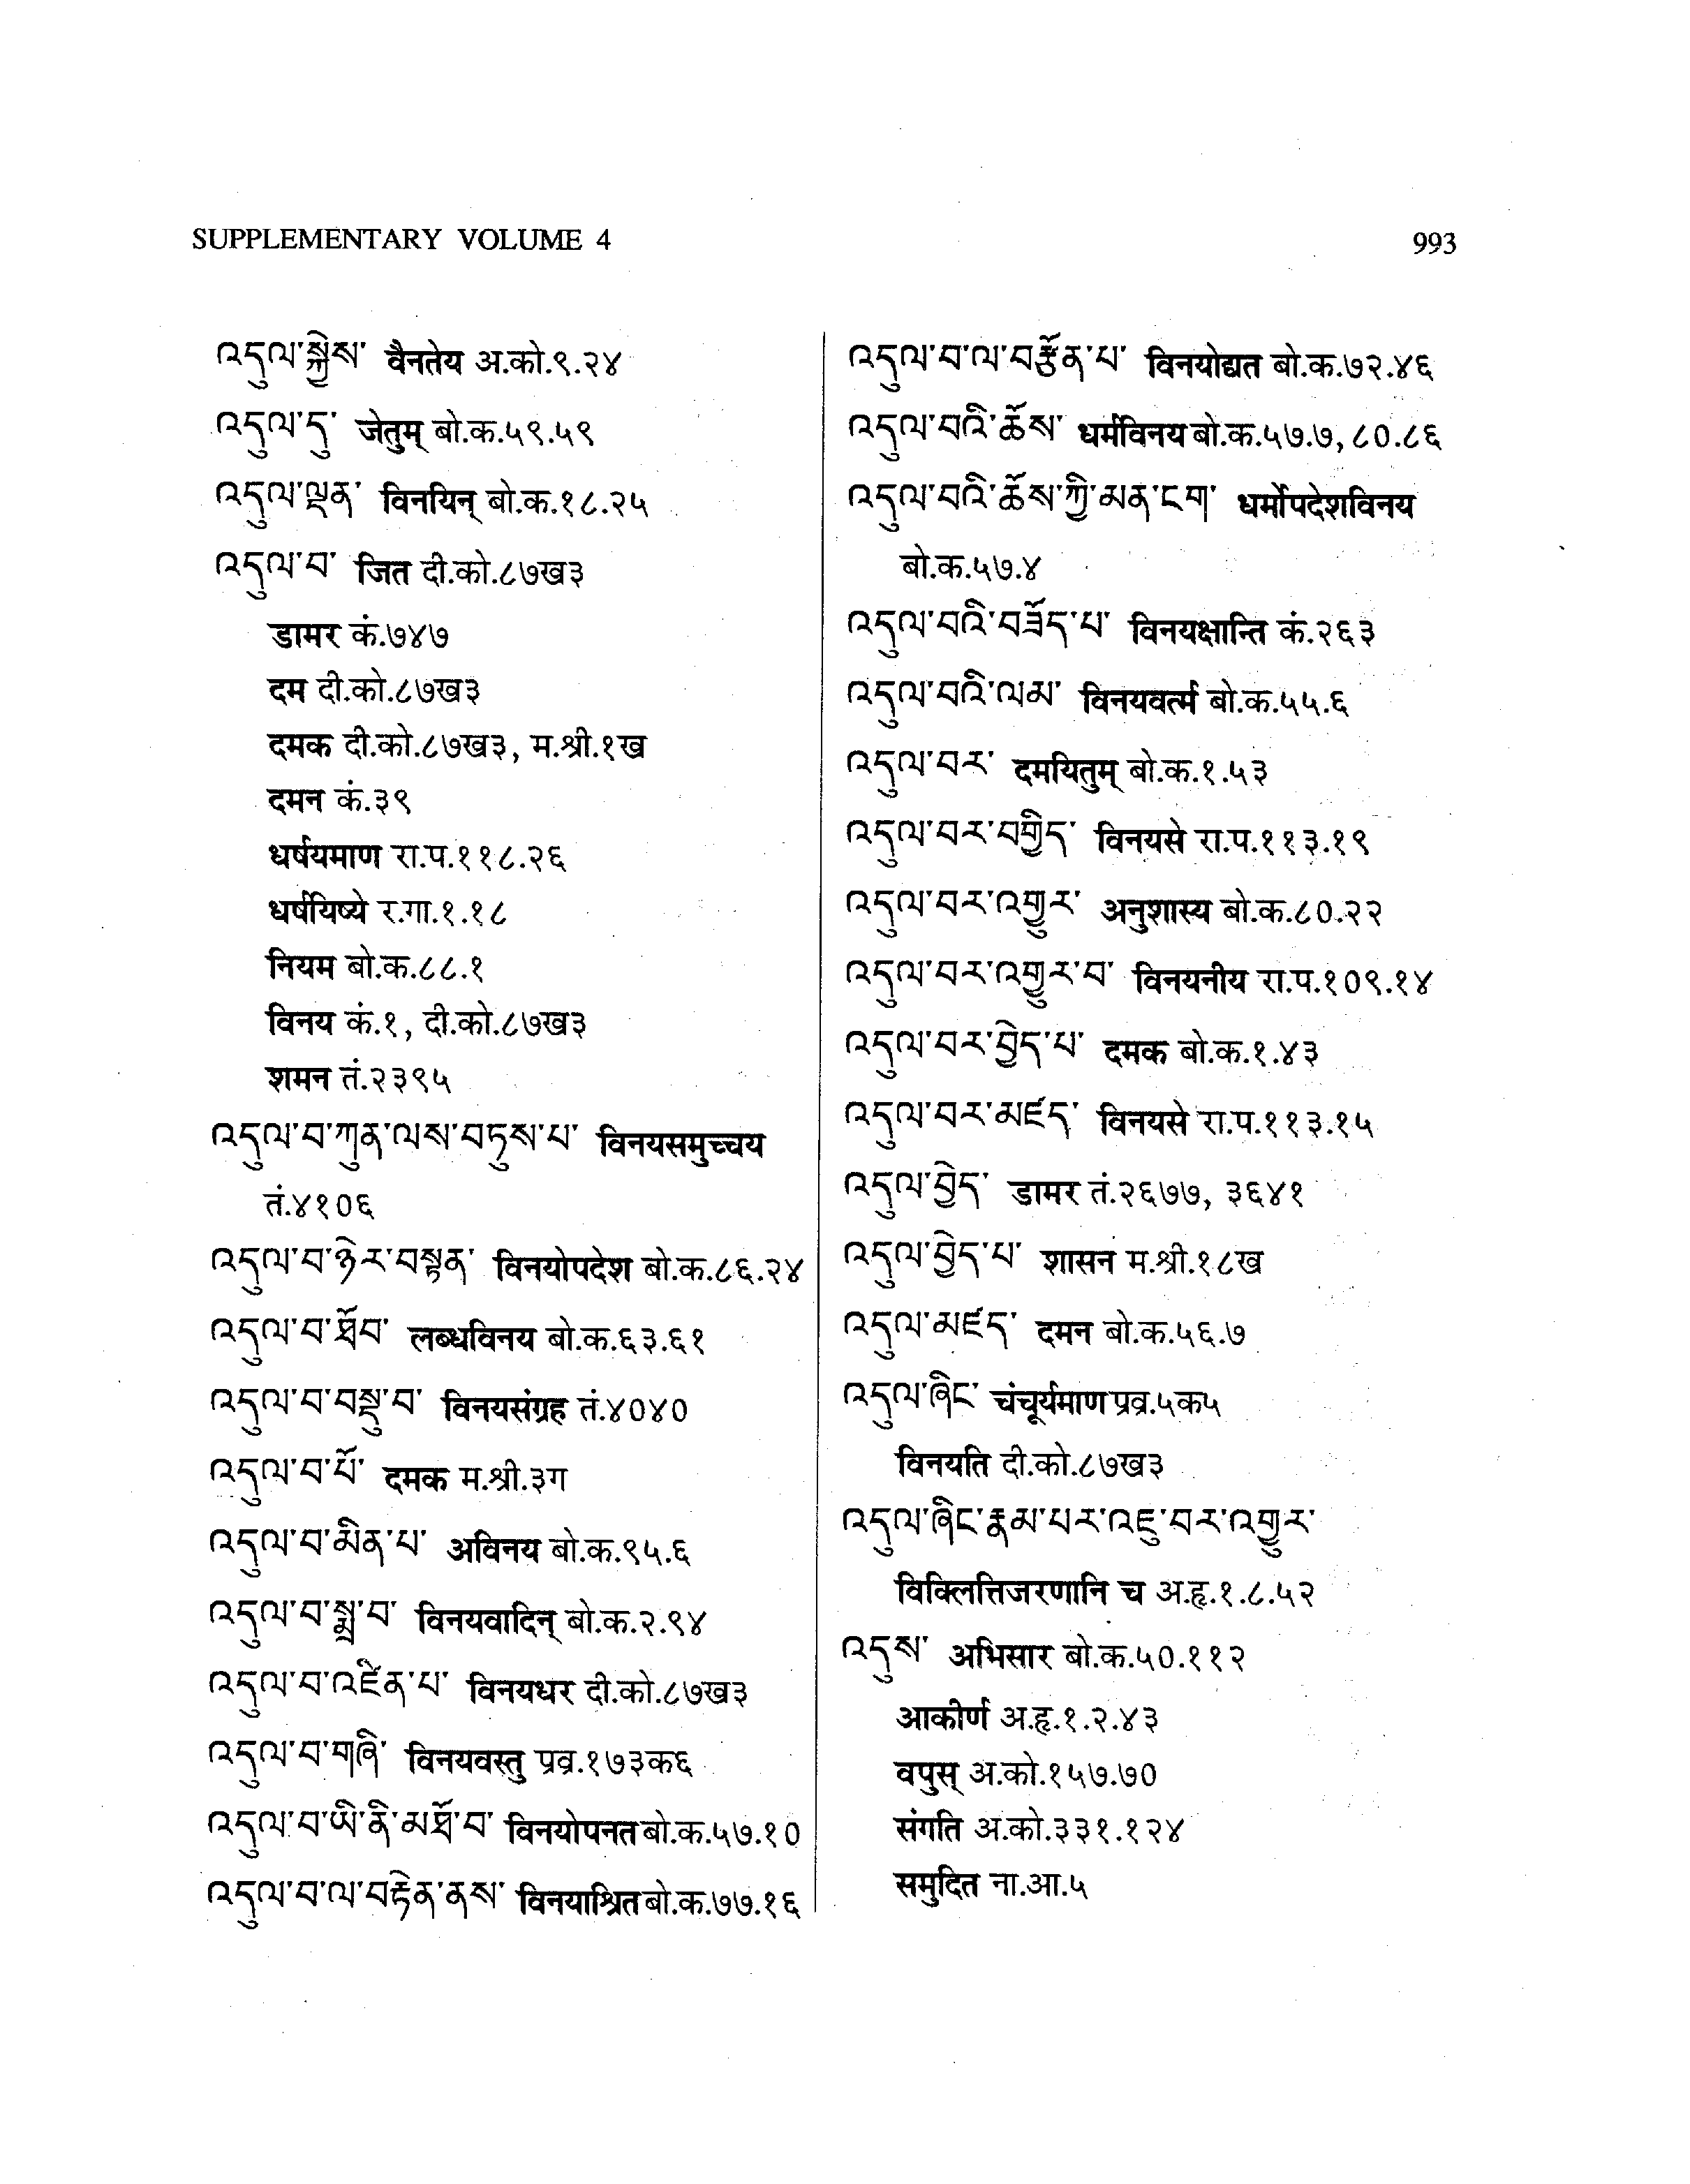 SUPPLEMENTARY VOLUME 4
993
འདུལ་སྐྱེས་ वैनतेय अ.को.९.२४
འདུལ་དུ་ जेतुम् बो.क.५९.५९
འདུལ་ལྡན་ विनयिन् बो.क.१८.२५
འདུལ་བ་ जित दी.को.८७ख३
डामर कं.७४७
दम दी.को.८७ख३
दमक दी.को.८७ख३, म.श्री.१ख
दमन कं.३९
धर्षयमाण रा.प.११८.२६
धर्षयिष्ये र.गा.१.१८
नियम बो.क.८८.१
विनय कं.१, दी.को.८७ख३
शमन तं.२३९५
འདུལ་བ་ཀུན་ལས་བཏུས་པ་ विनयसमुच्चय
तं.४१०६
འདུལ་བ་ཉེར་བསྟན་ विनयोपदेश बो.क.८६.२४
འདུལ་བ་ཐོབ་ लब्धविनय बो.क.६३.६१
འདུལ་བ་བསྡུ་བ་ विनयसंग्रह तं.४०४०
འདུལ་བ་པོ་ दमक म.श्री.३ग
འདུལ་བ་མིན་པ་ अविनय बो.क.९५.६
འདུལ་བ་སྨྲ་བ་ विनयवादिन् बो.क.२.९४
འདུལ་བ་འཛིན་པ་ विनयधर दी.को.८७ख३
འདུལ་བ་གཞི་ विनयवस्तु प्रव्र.१७३क६
འདུལ་བ་ཡི་ནི་མཐོ་བ་ विनयोपनत बो.क.५७.१०
འདུལ་བ་ལ་བརྟེན་ནས་ विनयाश्रित बो.क.७७.१६
འདུལ་བ་ལ་བརྩོན་པ་ विनयोद्यत बो.क.७२.४६
འདུལ་བའི་ཆོས་ धर्मविनय बो.क.५७.७, ८०.८६
འདུལ་བའི་ཆོས་ཀྱི་མན་ངག་ धर्मोपदेशविनय
बो.क.५७.४
འདུལ་བའི་བཟོད་པ་ विनयक्षान्ति कं.२६३
འདུལ་བའི་ལམ་ विनयवर्त्म बो.क.५५.६
འདུལ་བར་ दमयितुम् बो.क.१.५३
འདུལ་བར་བགྱིད་ विनयसे रा.प.११३.१९
འདུལ་བར་འགྱུར་ अनुशास्य बो.क.८०.२२
འདུལ་བར་འགྱུར་བ་ विनयनीय रा.प.१०९.१४
འདུལ་བར་བྱེད་པ་ दमक बो.क.१.४३
འདུལ་བར་མཛད་ विनयसे रा.प.११३.१५
འདུལ་བྱེད་ डामर तं.२६७७, ३६४१
འདུལ་བྱེད་པ་ शासन म.श्री.१८ख
འདུལ་མཛད་ दमन बो.क.५६.७
འདུལ་ཞིང་ चंचूर्यमाण प्रव्र.५क५
विनयति दी.को.८७ख३
འདུལ་ཞིང་རྣམ་པར་འཇུ་བར་འགྱུར་
विक्लित्तिजरणानि च अ.हृ.१.८.५२
འདུས་ अभिसार बो.क.५०.११२
आकीर्ण अ.हृ.१.२.४३
वपुस् अ.को.१५७.७०
संगति अ.को.३३१.१२४
समुदित ना.आ.५